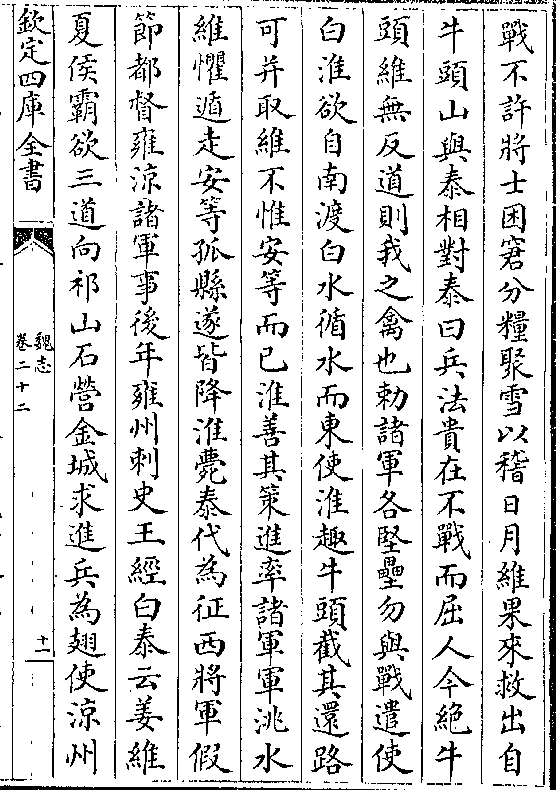 戰不許將士困窘分糧聚雪以稽日月維果來救出自
牛頭山與泰相對泰曰兵法貴在不戰而屈人今絶牛
頭維無反道則我之禽也勅諸軍各堅壘勿與戰遣使
白淮欲自南渡白水循水而東使淮趣牛頭截其還路
可并取維不惟安等而已淮善其策進率諸軍軍洮水
維懼遁走安等孤縣遂皆降淮薨泰代為征西將軍假
節都督雍涼諸軍事後年雍州刺史王經白泰云姜維
夏侯霸欲三道向祁山石營金城求進兵為翅使涼州
欽定四庫全書
魏志
卷二十二
十一